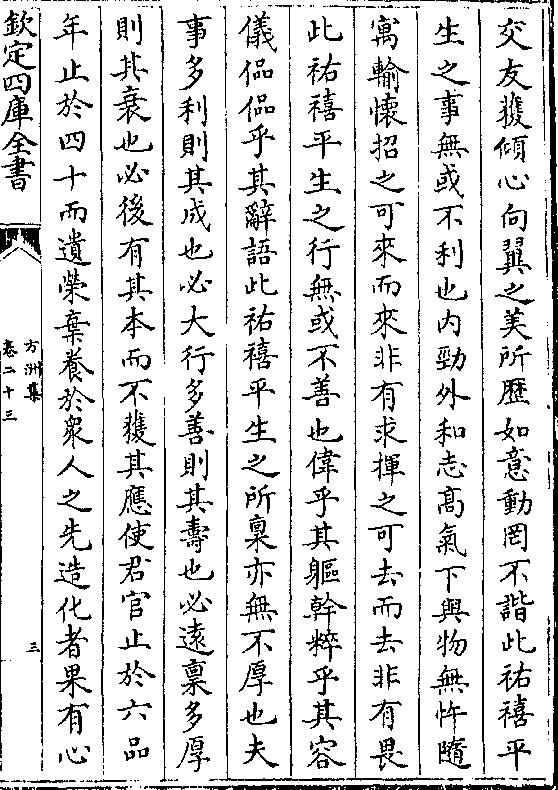 交友獲傾心向翼之美所歴如意動罔不諧此祐禧平
生之事無或不利也内勁外和志髙氣下與物無忤隨
寓輸懷招之可來而來非有求揮之可去而去非有畏
此祐禧平生之行無或不善也偉乎其軀幹粹乎其容
儀偘偘乎其辭語此祐禧平生之所稟亦無不厚也夫
事多利則其成也必大行多善則其壽也必逺稟多厚
則其衰也必後有其本而不獲其應使君官止於六品
年止於四十而遺榮棄養於衆人之先造化者果有心
欽定四庫全書
方洲集
卷二十三
三